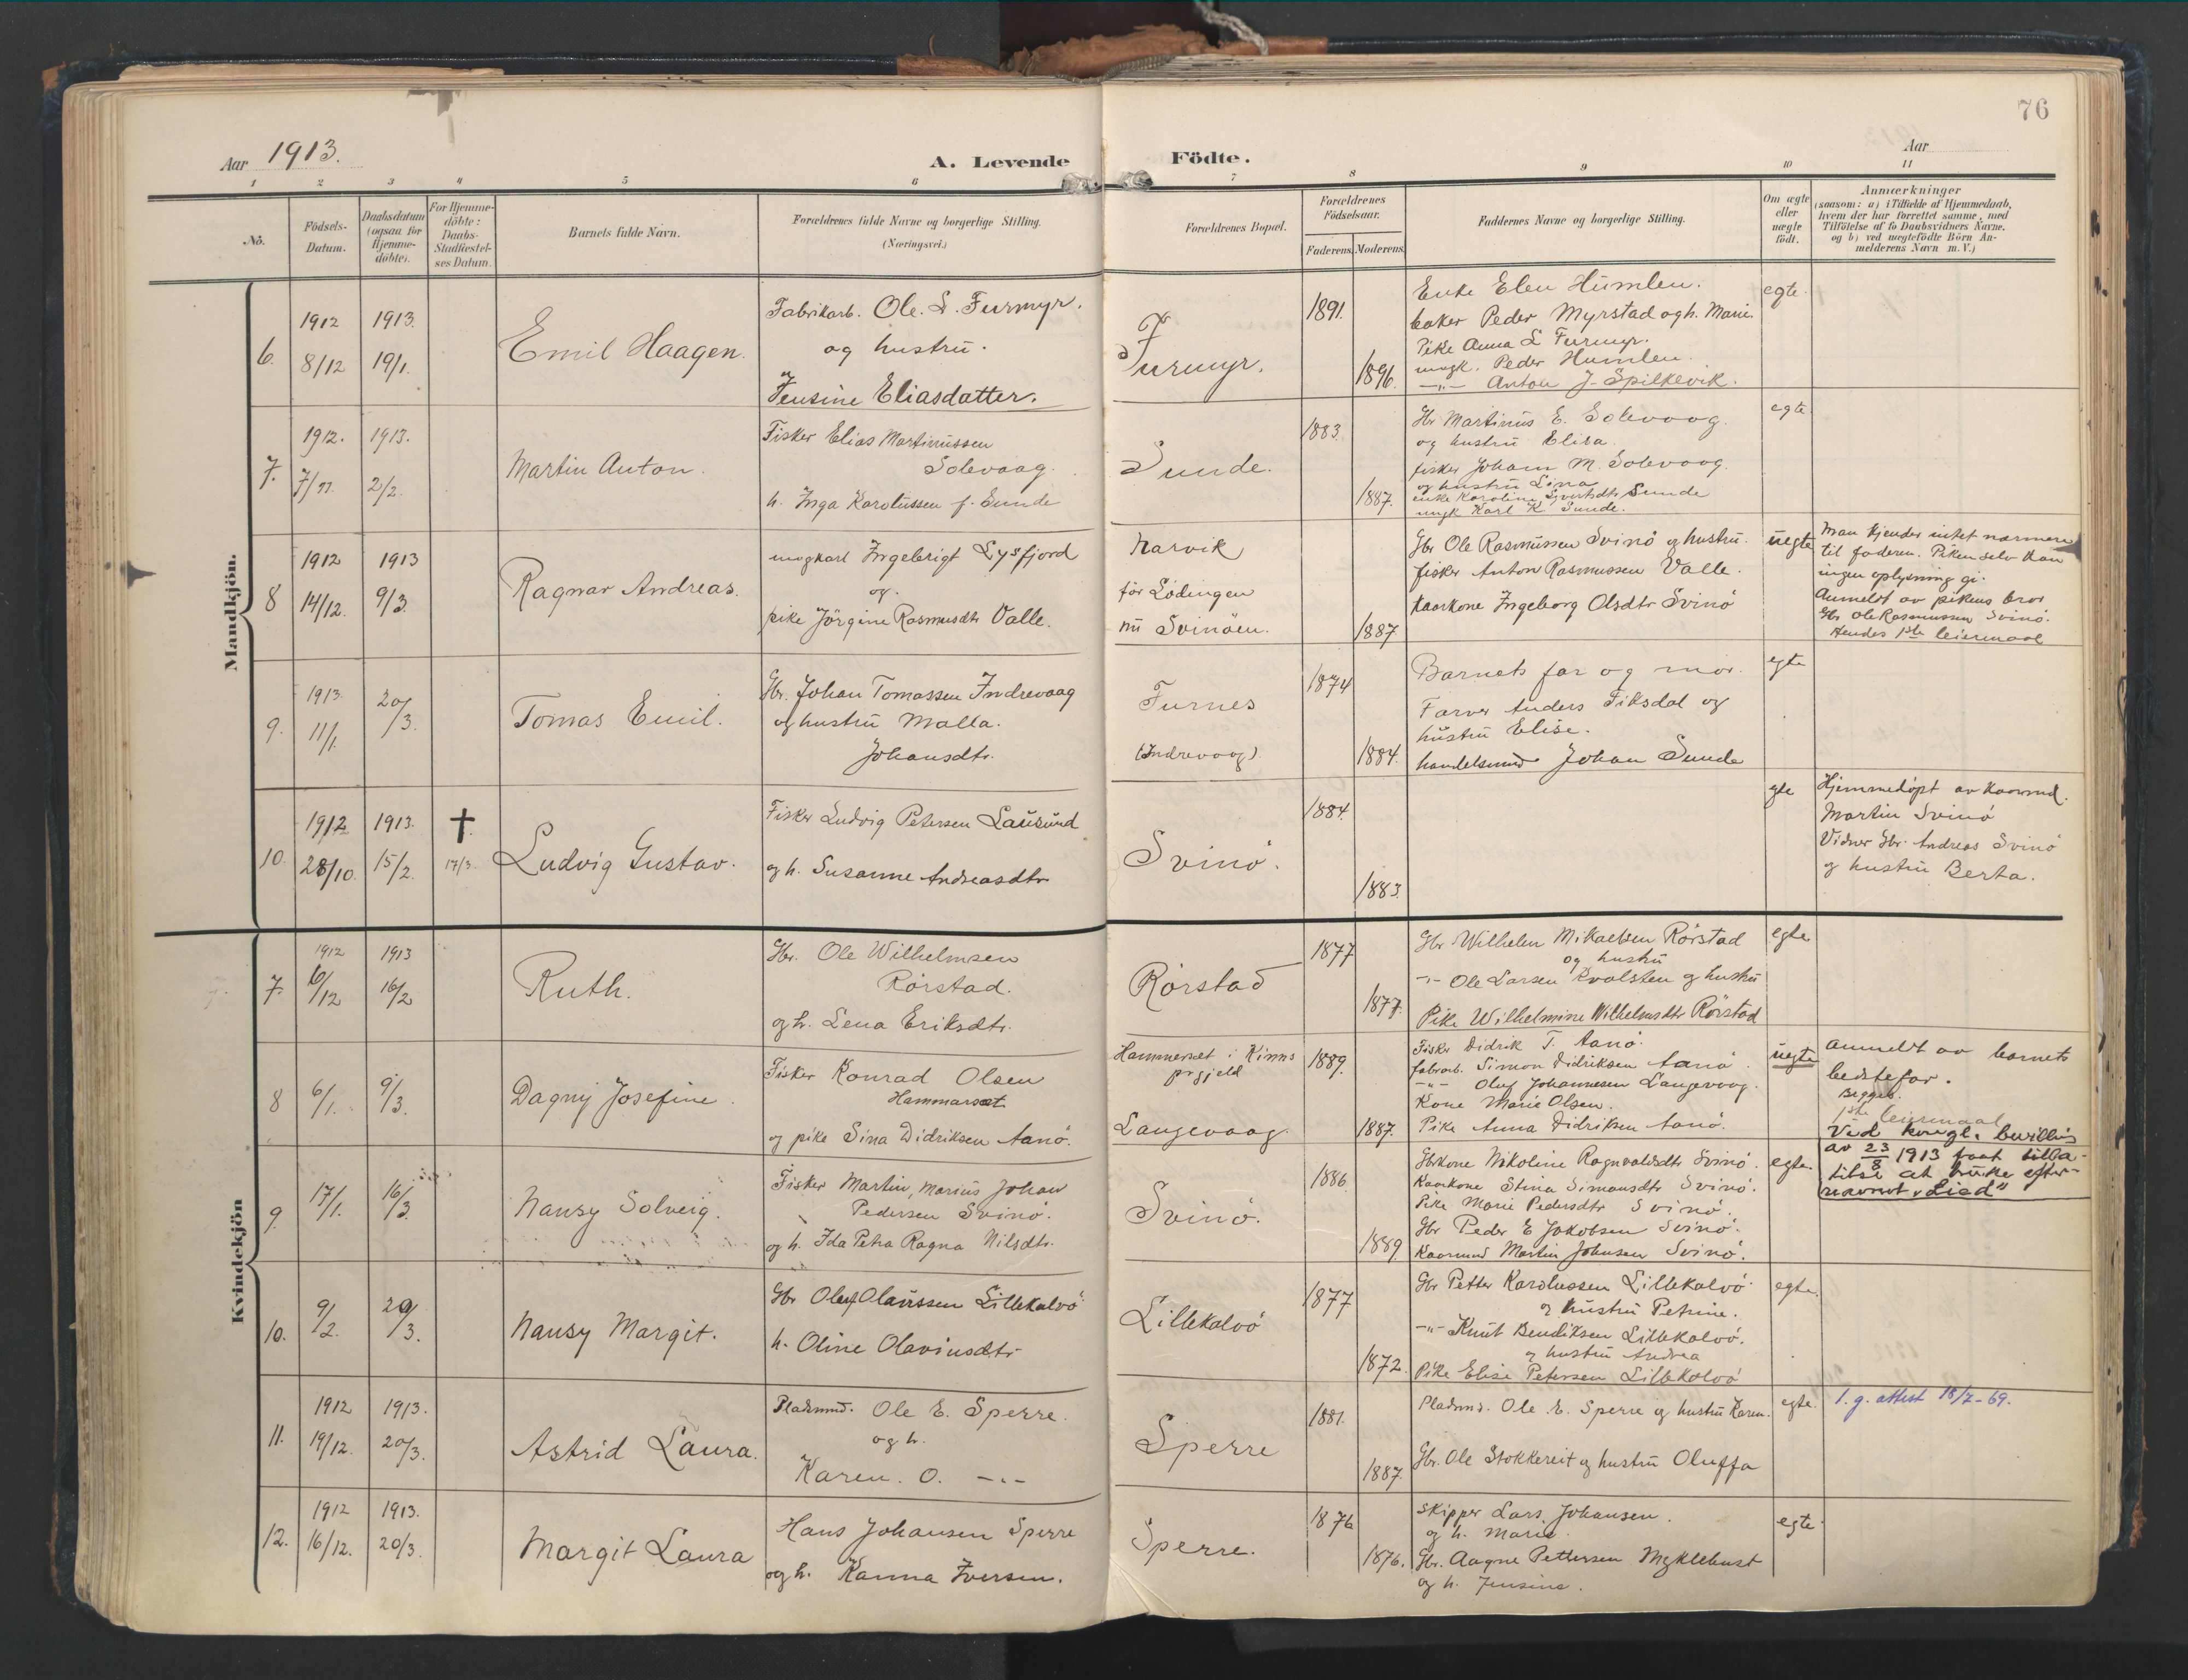 76
Aar 1913.
A. Levende Födte.
Aar
1 2 3 4 5 6 7 8 9 10 11
Nö.
Födsels-Datum.
Daabsdatum (ogsaa for Hjemme-döbte).
For Hjemme-döbte: Daabs-Stadfæstel-ses Datum.
Barnets fulde Navn.
Forældrenes fulde Navne og borgerlige Stilling.
(Næringsvei.)
Forældrenes Bopæl.
Forældrenes Födselsaar.
Faderens. Moderens.
Faddernes Navne og borgerlige Stilling.
Om ægte eller uægte födt.
Anmærkninger
(saasom: a) i Tilfælde af Hjemmedaab,
hvem der har forrettet samme, med
Tilföielse af to Daabsvidners Navne,
og b) ved uægtefödte Börn An-
melderens Navn m. V.)
Mandkjön.
6.
1912 8/12
1913. 19/1.
Emil Haagen.
Fabrikarb. Ole. L. Furmyr.
og hustru.
Jensine Eliasdatter.
Furmyr.
1891.
1896
Enke Elen Humlen.
baker Peder Myrstad og h. Marie.
Pike Anna L Furmyr.
ungk. Peder Humlen.
—"— Anton J. Spilkevik.
egte.
7.
1912. 7/11.
1913. 2/2.
Martin Anton.
Fisker Elias Martinussen
Solevaag.
h. Inga Karolussen f. Sunde
Sunde.
1883.
1887.
Gbr Martinus E. Solevaag.
og hustru Elisa.
fisker Johan M. Solevaag.
og hustru Lina
enke Karoline Sjvertsdtr Sunde
ungk Karl K Sunde.
egte
8
1912 14/12.
1913 9/3
Ragnar Andreas.
ungkarl Ingebrigt Lysfjord
og.
pike Jörgine Rasmusdtr Valle.
Narvik
för Lödingen
nu Svinöen.
1887
Gbr Ole Rasmussen Svinö og hustru.
fisker Anton Rasmussen Valle.
kaarkone Ingeborg Olsdtr Svinö
uegte
Man kjender intet nærmere
til faderen. Piken selv kan
ingen oplysning gi.
Anmeldt av pikens bror
Gbr Ole Rasmussen Svinö.
Hendes 1ste leiermaal
9.
1913. 11/1.
20/3.
Tomas Emil.
Gbr. Johan Tomassen Indrevaag
og hustru Malla.
Johansdtr.
Furnes
(Indrevaag)
1874
1884.
Barnets far og mor.
Farver Anders Fiksdal og
hustru Elise.
handelsmand Johan Sunde
egte
10.
1912 28/10.
1913. 15/2.
† 17/3.
Ludvig Gustav.
Fisker Ludvig Petersen Lausund
og h. Susanne Andreasdtr
Svinö.
1884.
1883.
egte
Hjemmedöpt av kaarmd.
Martin Svinö
Vidner Gbr. Andreas Svinö
og hustru Berta.
Kvindekjön
7.
1912 6/12
1913 16/2
Ruth.
Gbr. Ole Wilhelmsen
Rörstad.
og h. Lena Eriksdtr.
Rörstad
1877
1877.
Gbr Wilhelm Mikaelsen Rörstad
og hustru
—"— Ole Larsen Kvalsten og hustru
Pike Wilhelmine Wilhelmsdtr Rörstad
egte
8
6/1.
9/3.
Dagny Josefine.
Fisker Konrad Olsen
Hammarset
og pike Sina Didriksen Aanö.
Hammerset i Kinns
prgjeld
Langevaag
1889.
1887.
Fisker Didrik T. Aanö.
fabrarb. Simon Didriksen Aanö.
—"— Oluf Johannesen Langevaag.
Kone Marie Olsen.
Pike Anna Didriksen Aanö.
uegte
Anmeldt av barnets
bedstefar.
Begges
1ste leiermaal
Ved kongl. bevilling
av 23/8 1913 faat tilla-
telse at bruke efter-
navnet "Lied"
9.
17/1.
16/3.
Nansy Solveig.
Fisker Martin, Marius Johan
Pedersen Svinö.
og h. Ida Petra Ragna Nilsdtr.
Svinö.
1886
1889
Gbrkone Nikoline Ragnvaldsdtr Svinö.
Kaarkone Stina Simonsdtr Svinö.
Pike Marie Pedersdtr Svinö.
Gbr Peder E Jakobsen Svinö.
Kaarmand Martin Johnsen Svinö.
egte.
10.
9/2.
20/3.
Nansy Margit.
Gbr Oluf Olaussen Lillekalvö
h. Oline Olavinsdtr
Lillekalvö
1877
1872.
Gbr Petter Karolussen Lillekalvö
og hustru Petrine.
—"— Knut Bendiksen Lillekalvö.
og hustru Andrea
Pike Elise Petersen Lillekalvö
egte.
11.
1912 19/12.
1913. 20/3.
Astrid Laura.
Pladsmd. Ole E. Sperre.
og h.
Karen. O. —"—
Sperre
1881.
1887.
Pladsmd. Ole E. Sperre og hustru Karen.
Gbr. Ole Stokkereit og hustru Oluffa
egte.
1. g. attest 18/7-69.
12.
1912 16/12.
1913. 20/3.
Margit Laura
Hans Johansen Sperre
og h. Kanna Iversen.
Sperre.
1876
1876.
Skipper Lars Johansen.
og h. Marie.
Gbr. Aagne Pettersen Myklebust
og h. Jensine.
egte.